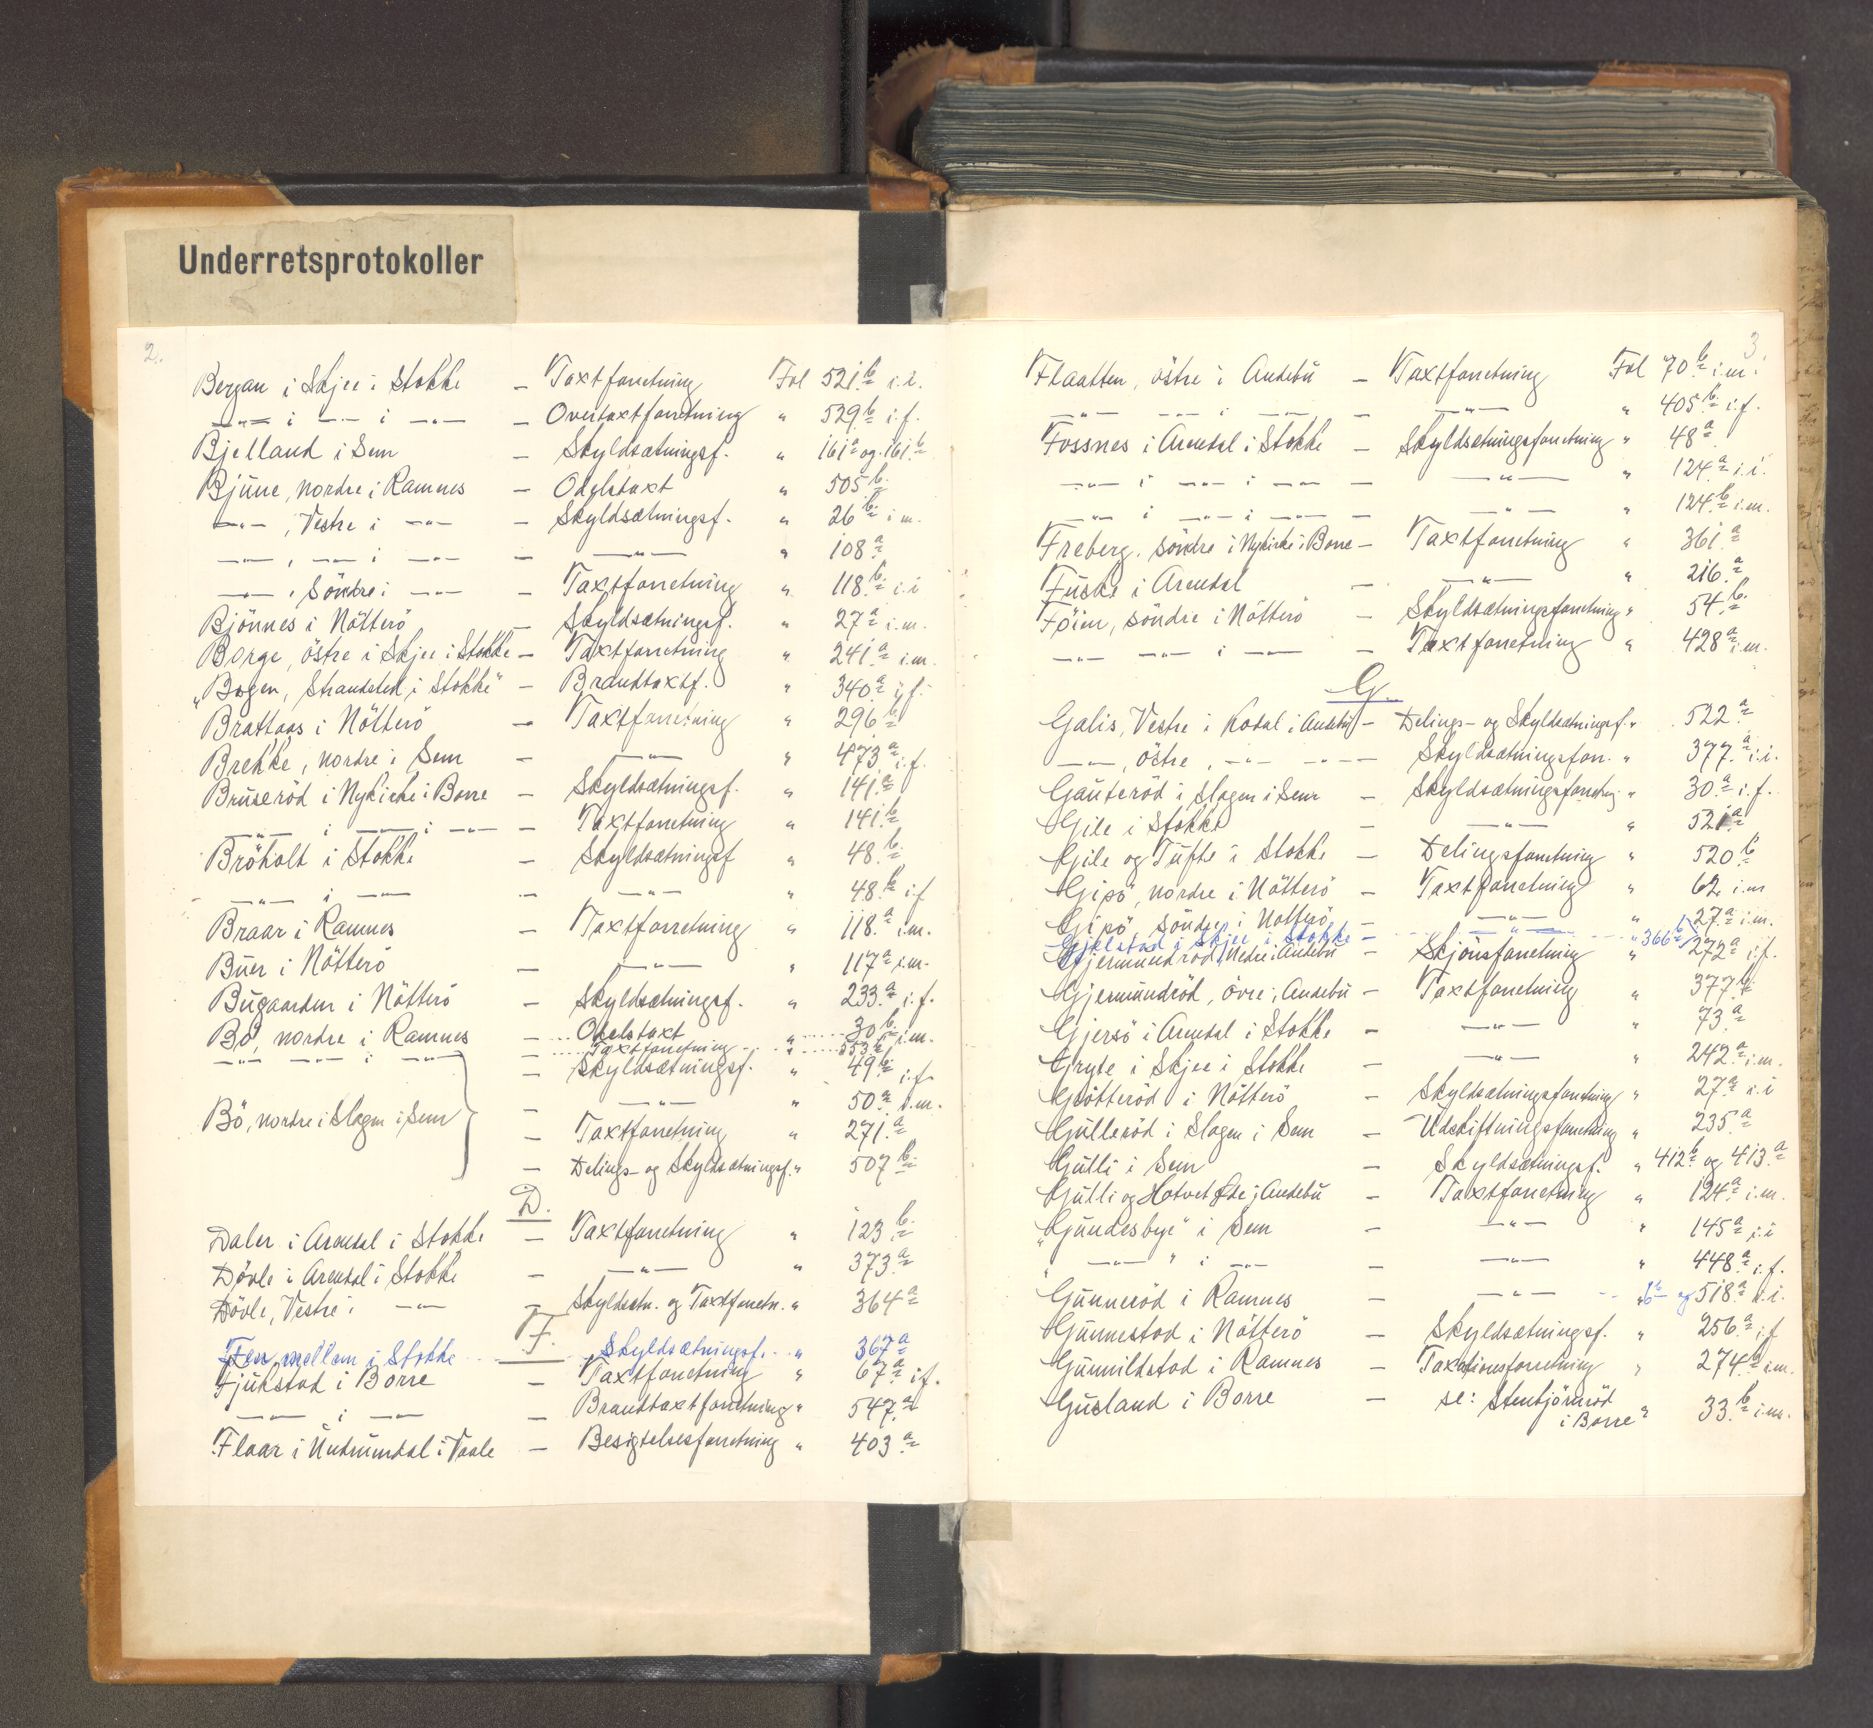 Underretsprotokoller
2.
Bergan i Skjee i Stokke — Taxtforretning Fol 521 b i.i.
—"— i —"— i —"— — Overtaxtforretning " 529 b i.f.
Bjelland i Sem — Skyldsætningsf. " 161 a og 161 b
Bjune, nordre i Ramnes — Odelstaxt " 505 b
—"—, Vestre i —"— — Skyldsætningsf. " 26 b i m.
—"—, —"— i —"— — —"— " 108 a
—"—, Söndre i —"— — Taxtforretning " 118 b i.i
Bjönnes i Nötterö — Skyldsætningsf. " 27 a i.m.
Borge, östre i Skjee i Stokke — Taxtforretning " 241 a i.m.
"Bogen, Strandsted i Stokke" — Brandtaxtf. " 340 a i.f.
Brattaas i Nötterö — Taxtforretning " 296 b
Brekke, nordre i Sem — —"— " 473 a i.f.
Bruseröd i Nykirke i Borre — Skyldsætningsf. " 141 a
—"— i —"— i —"— — Taxtforretning " 141 b
Bröholt i Stokke — Skyldsætningsf " 48 b
—"— i —"— — —"— " 48 b i.f
Braar i Ramnes — Taxtforretning " 118 a i.m.
Buer i Nötterö — —"— " 117 a i.m.
Bugaarden i Nötterö — Skyldsætningsf. " 233 a i.f.
Bö, nordre i Ramnes — Odelstaxt " 30 b i.m.
—"— —"— i —"— — Taxtforretning " 553 a
— Skyldsætningsf. " 49 b i.f
Bö, nordre i Slagen i Sem — —"— " 50 a i.m.
— Taxtforretning " 271 a
— Delings- og Skyldsætningsf. " 507 b
D.
Daler i Arendal i Stokke — Taxtforretning " 123 b
Dövle i Arendal i Stokke — —"— " 373 a
Dövle, Vestre i —"— — Skyldsætn. og Taxtforretn. " 364 a
F.
Fen mellem i Stokke Skyldsætningsf. " 367 a
Fjukstad i Borre — Taxtforretning " 67 a i.f.
—"— i —"— — Brandtaxtforretning " 547 a
Flaar i Undrumdal i Vaale — Besigtelsesforretning " 403 a
3.
Flaatten, östre i Andebu — Taxtforretning Fol 70 b i.m.
—"— —"— i —"— — —"— " 405 b i.f.
Fossnes i Arendal i Stokke — Skyldsætningsforretning " 48 a
—"— i —"— i —"— — —"— " 124 a i.i.
—"— i —"— i —"— — —"— " 124 b i.m.
Freberg, söndre i Nykirke i Borre — Taxtforretning " 361 a
Fuske i Arendal — —"— " 216 a
Föien, söndre i Nötterö — Skyldsætningsforretning " 54 b
—"— —"— i —"— — Taxtforretning " 428 a i.m.
G.
Galis, Vestre i Kodal i Andebu — Delings- og Skyldsætningsf. " 522 a
—"—, östre, —"— —"— — Skyldsætningsforr. " 377 a i.i.
Gauteröd i Slagen i Sem — Skyldsætningsforretng " 30 a i.f.
Gile i Stokke — —"— " 521 a
Gile og Tufte i Stokke — Delingsforretning " 520 b
Gipö, nordre i Nötterö — Taxtforretning " 62 i.m
Gipö söndre i Nötterö — —"— " 27 a i.m.
Gjelstad i Skjee i Stokke — —"— " 366 b
Gjermundröd, Nedre i Andebu — Skjönsforretning " 272 a i.f.
Gjermundröd, övre i Andebu — Taxtforretning " 377 b
Gjersö i Arendal i Stokke — —"— " 73 a
Gryte i Skjee i Stokke — —"— " 242 a i.m.
Grötteröd i Nötterö — Skyldsætningsforretning " 27 a i.i
Gulleröd i Slagen i Sem — Udskiftningsforretning " 235 a
Gulli i Sem — Skyldsætningsf. " 412 b og 413 a
Gulli og Hotvet i Andebu — Taxtforretning " 124 a i.m.
"Gundesbye" i Sem — —"— " 145 a i.i
" —"— " i —"— — —"— " 448 a i.f.
Gunneröd i Ramnes — —"— " 6 b og 518 a i.i.
Gunnestad i Nötterö — Skyldsætningsf. " 256 a i.f
Gunnildstad i Ramnes — Taxationsforretning " 274 b i.m.
Gusland i Borre — se: Stenbjörnröd
i Borre " 33 b i.m.